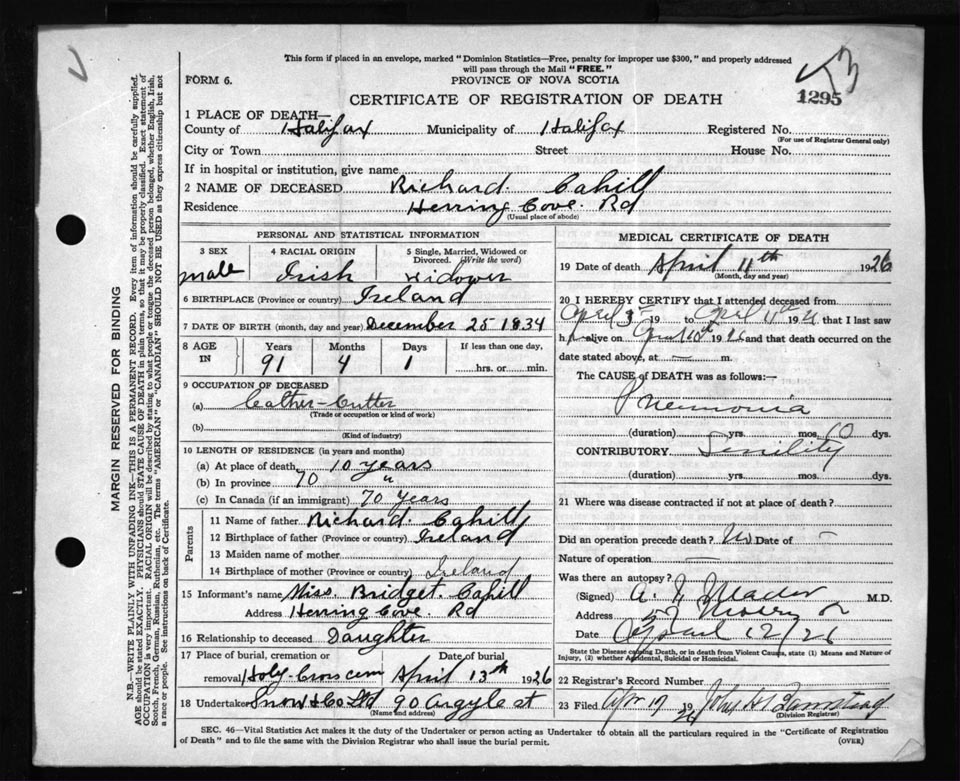 This form if placed in an envelope, marked "Dominion Statistics—Free, penalty for improper use $300," and properly addressed
will pass through the Mail "FREE."
FORM 6.
PROVINCE OF NOVA SCOTIA
CERTIFICATE OF REGISTRATION OF DEATH
1295
1 PLACE OF DEATH—
County of Halifax Municipality of Halifax Registered No.
(For use of Registrar General only)
City or Town Street House No.
If in hospital or institution, give name
2 NAME OF DECEASED Richard. Cahill
Residence Herring Cove. Rd
(Usual place of abode)
PERSONAL AND STATISTICAL INFORMATION
3 SEX 4 RACIAL ORIGIN 5 Single, Married, Widowed or Divorced. (Write the word)
male Irish widower
6 BIRTHPLACE (Province or country) Ireland
7 DATE OF BIRTH (month, day and year) December 25 1834
8 AGE IN Years Months Days If less than one day,
91 4 1 hrs. or min.
9 OCCUPATION OF DECEASED
(a) Leather-Cutter
(Trade or occupation or kind of work)
(b)
(Kind of industry)
10 LENGTH OF RESIDENCE (in years and months)
(a) At place of death 10 years
(b) In province 70 "
(c) In Canada (if an immigrant) 70 Years
Parents
11 Name of father Richard. Cahill
12 Birthplace of father (Province or country) Ireland
13 Maiden name of mother
14 Birthplace of mother (Province or country) Ireland
15 Informant's name Miss. Bridget. Cahill
Address Herring Cove. Rd
16 Relationship to deceased Daughter
17 Place of burial, cremation or removal Date of burial
Holy-Cross cem April 13th 1926
18 Undertaker Snow & Co Ltd 90 Argyle st
(Name and address)
MEDICAL CERTIFICATE OF DEATH
19 Date of death April 11th 1926
(Month, day and year)
20 I HEREBY CERTIFY that I attended deceased from
April 3rd 19 to April 11 1926 that I last saw
h alive on April 10th 1926 and that death occurred on the
date stated above, at — m.
The CAUSE of DEATH was as follows:—
Pneumonia
(duration) yrs. mos. 10 dys.
CONTRIBUTORY Senility
(duration) yrs. mos. dys.
21 Where was disease contracted if not at place of death?
Did an operation precede death? No Date of —
Nature of operation —
Was there an autopsy?
(Signed) M.D.
Address
Date April 12/26
State the Disease causing Death, or in death from Violent Causes, state (1) Means and Nature of
Injury, (2) whether Accidental, Suicidal or Homicidal.
22 Registrar's Record Number
23 Filed Apr 17 1926
(Division Registrar)
SEC. 46—Vital Statistics Act makes it the duty of the Undertaker or person acting as Undertaker to obtain all the particulars required in the "Certificate of Registration
of Death" and to file the same with the Division Registrar who shall issue the burial permit.
(OVER)
MARGIN RESERVED FOR BINDING
N.B.—WRITE PLAINLY WITH UNFADING INK—THIS IS A PERMANENT RECORD. Every item of information should be carefully supplied.
AGE should be stated EXACTLY. PHYSICIANS should STATE CAUSE OF DEATH in plain terms, so that it may be properly classified. Exact statement of
OCCUPATION is very important. RACIAL ORIGIN will be described by stating to what people or tongue the deceased person belonged, whether English, Irish,
Scotch, French, German, Russian, Ruthenian, etc. The terms "AMERICAN" or "CANADIAN" SHOULD NOT BE USED as they express citizenship but not
a race or people. See instructions on back of Certificate.